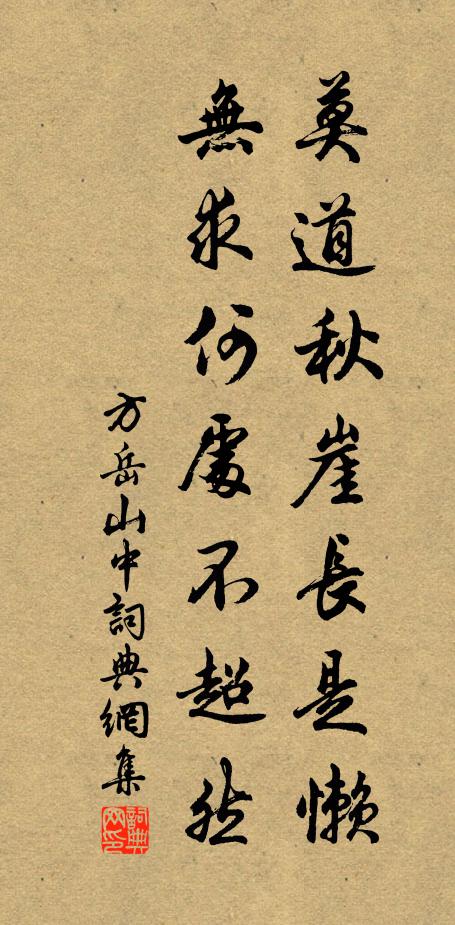 莫道秋崖長是懶
無求何處不超然
方岳山中詞典網集
詞典网印